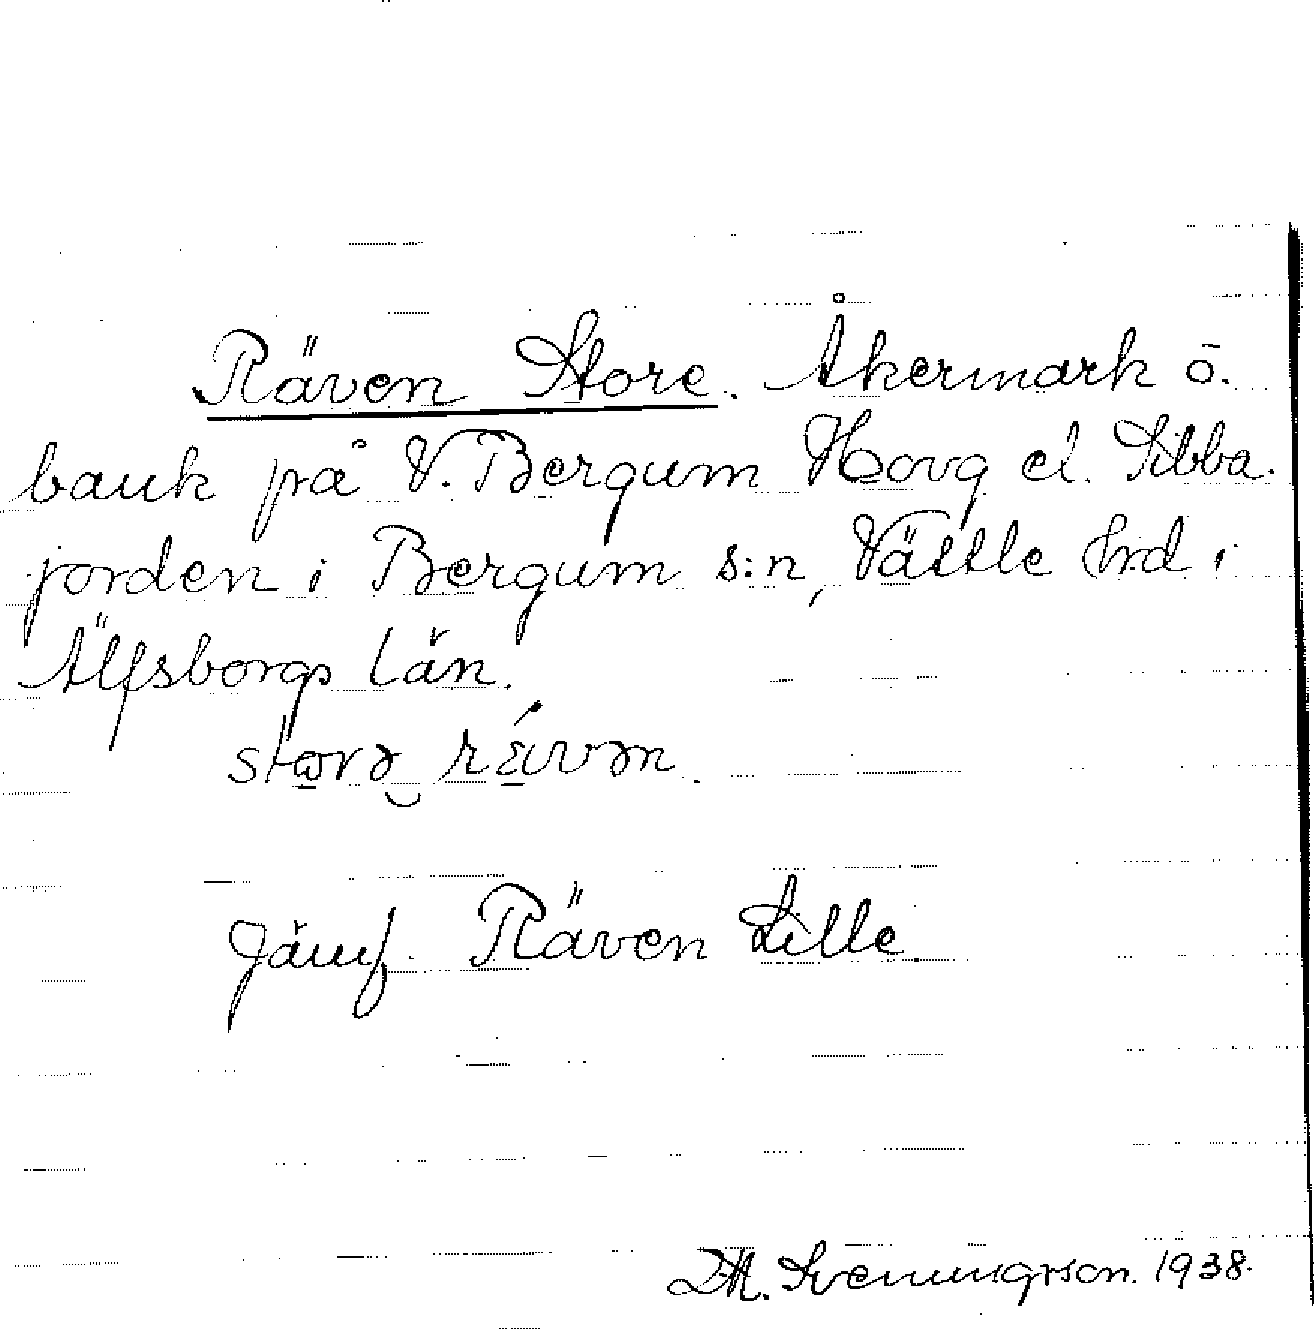 Räven Store. Åkermark o.
bauk på V. Bergum Hovg el. Sibba-
jorden i Bergum s:n, Vättle Hrd i
Älfsborgs län.
storə rävən.
Jämf. Räven Lille
M. Svenungsson. 1938.